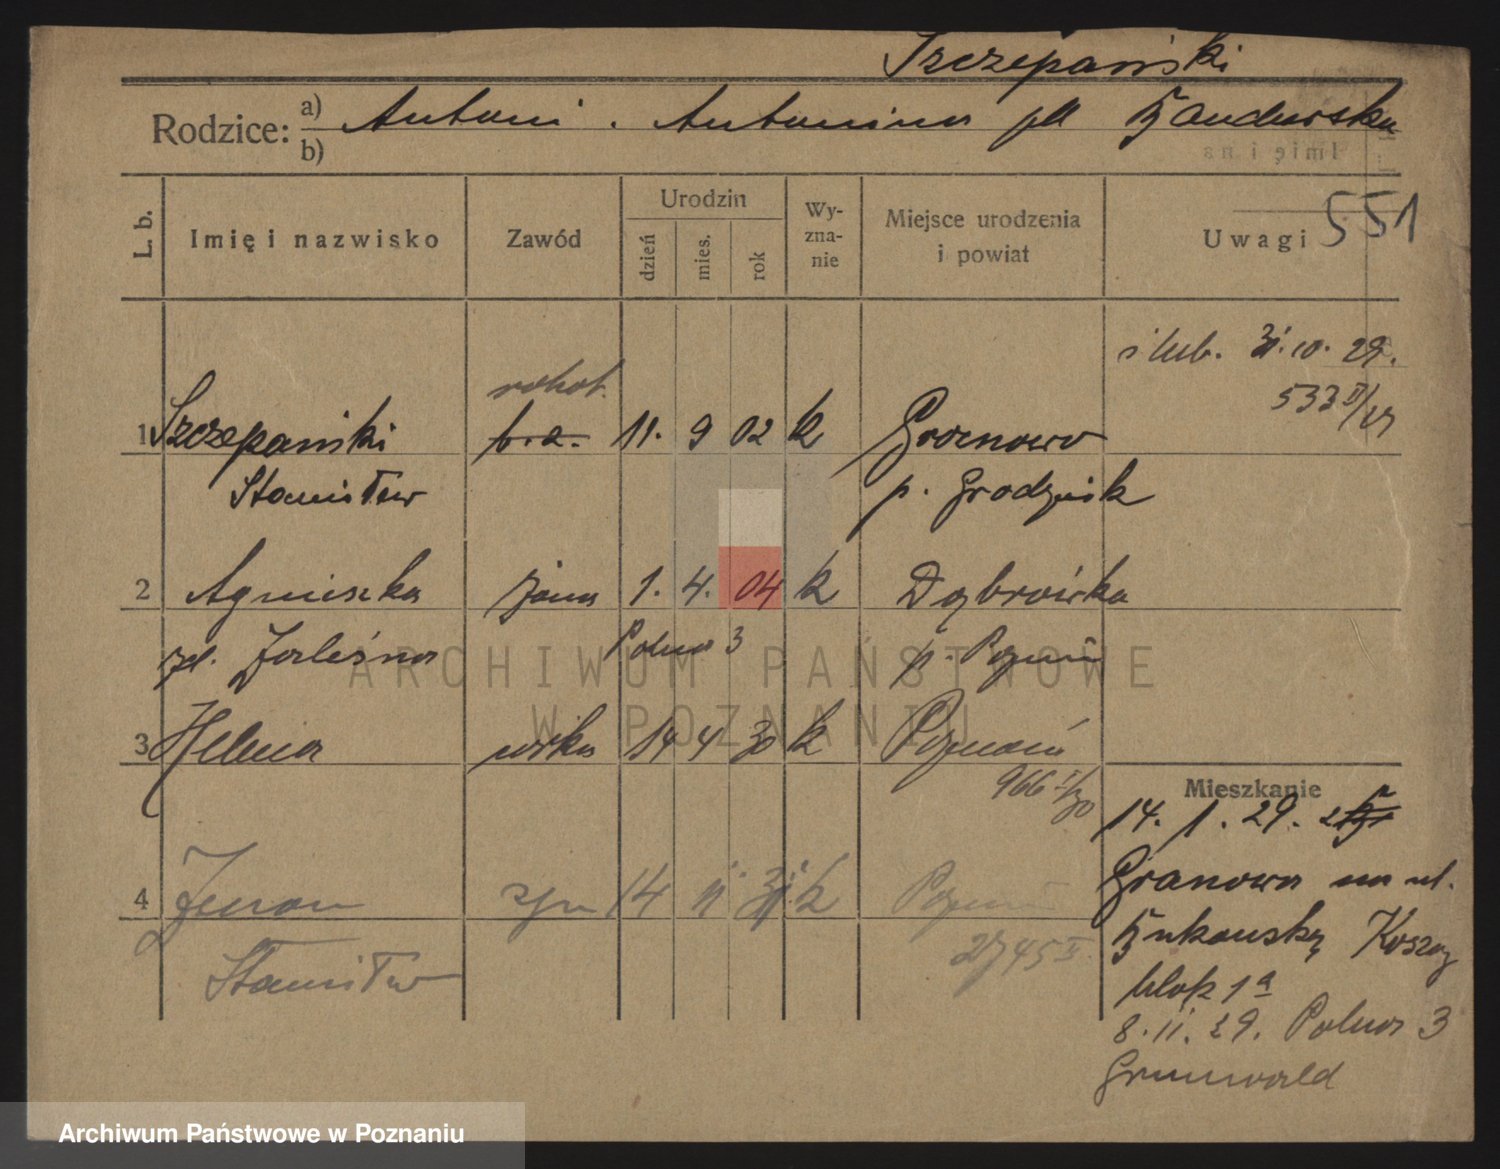 Szczepański
Rodzice: a) Antoni . Antonina
b)
Imię i na
L. b. Imię i nazwisko Zawód Urodzin dzień mies. rok Wy-zna-nie Miejsce urodzenia i powiat Uwagi 551
ślub. 31.10.29.
robot. 533 II/29
1 Szczepański b.z. 11. 9 02 k Granowo
Stanisław p. Grodzisk
2 Agnieszka żona 1. 4. 04 k Dąbrówka
Polna 3 p. Poznań
3 Helena córka 14 4 30 k Poznań
966 I/30
Mieszkanie
14. 1. 29. z
4 Zenon syn 14 11 31 k Poznań
Granowa na ul.
Stanisław 2745 II
Bukowską Koszary
blok 1a
8.11.29. Polna 3
Grunwald
ARCHIWUM PAŃSTWOWE
W POZNANIU
Archiwum Państwowe w Poznaniu